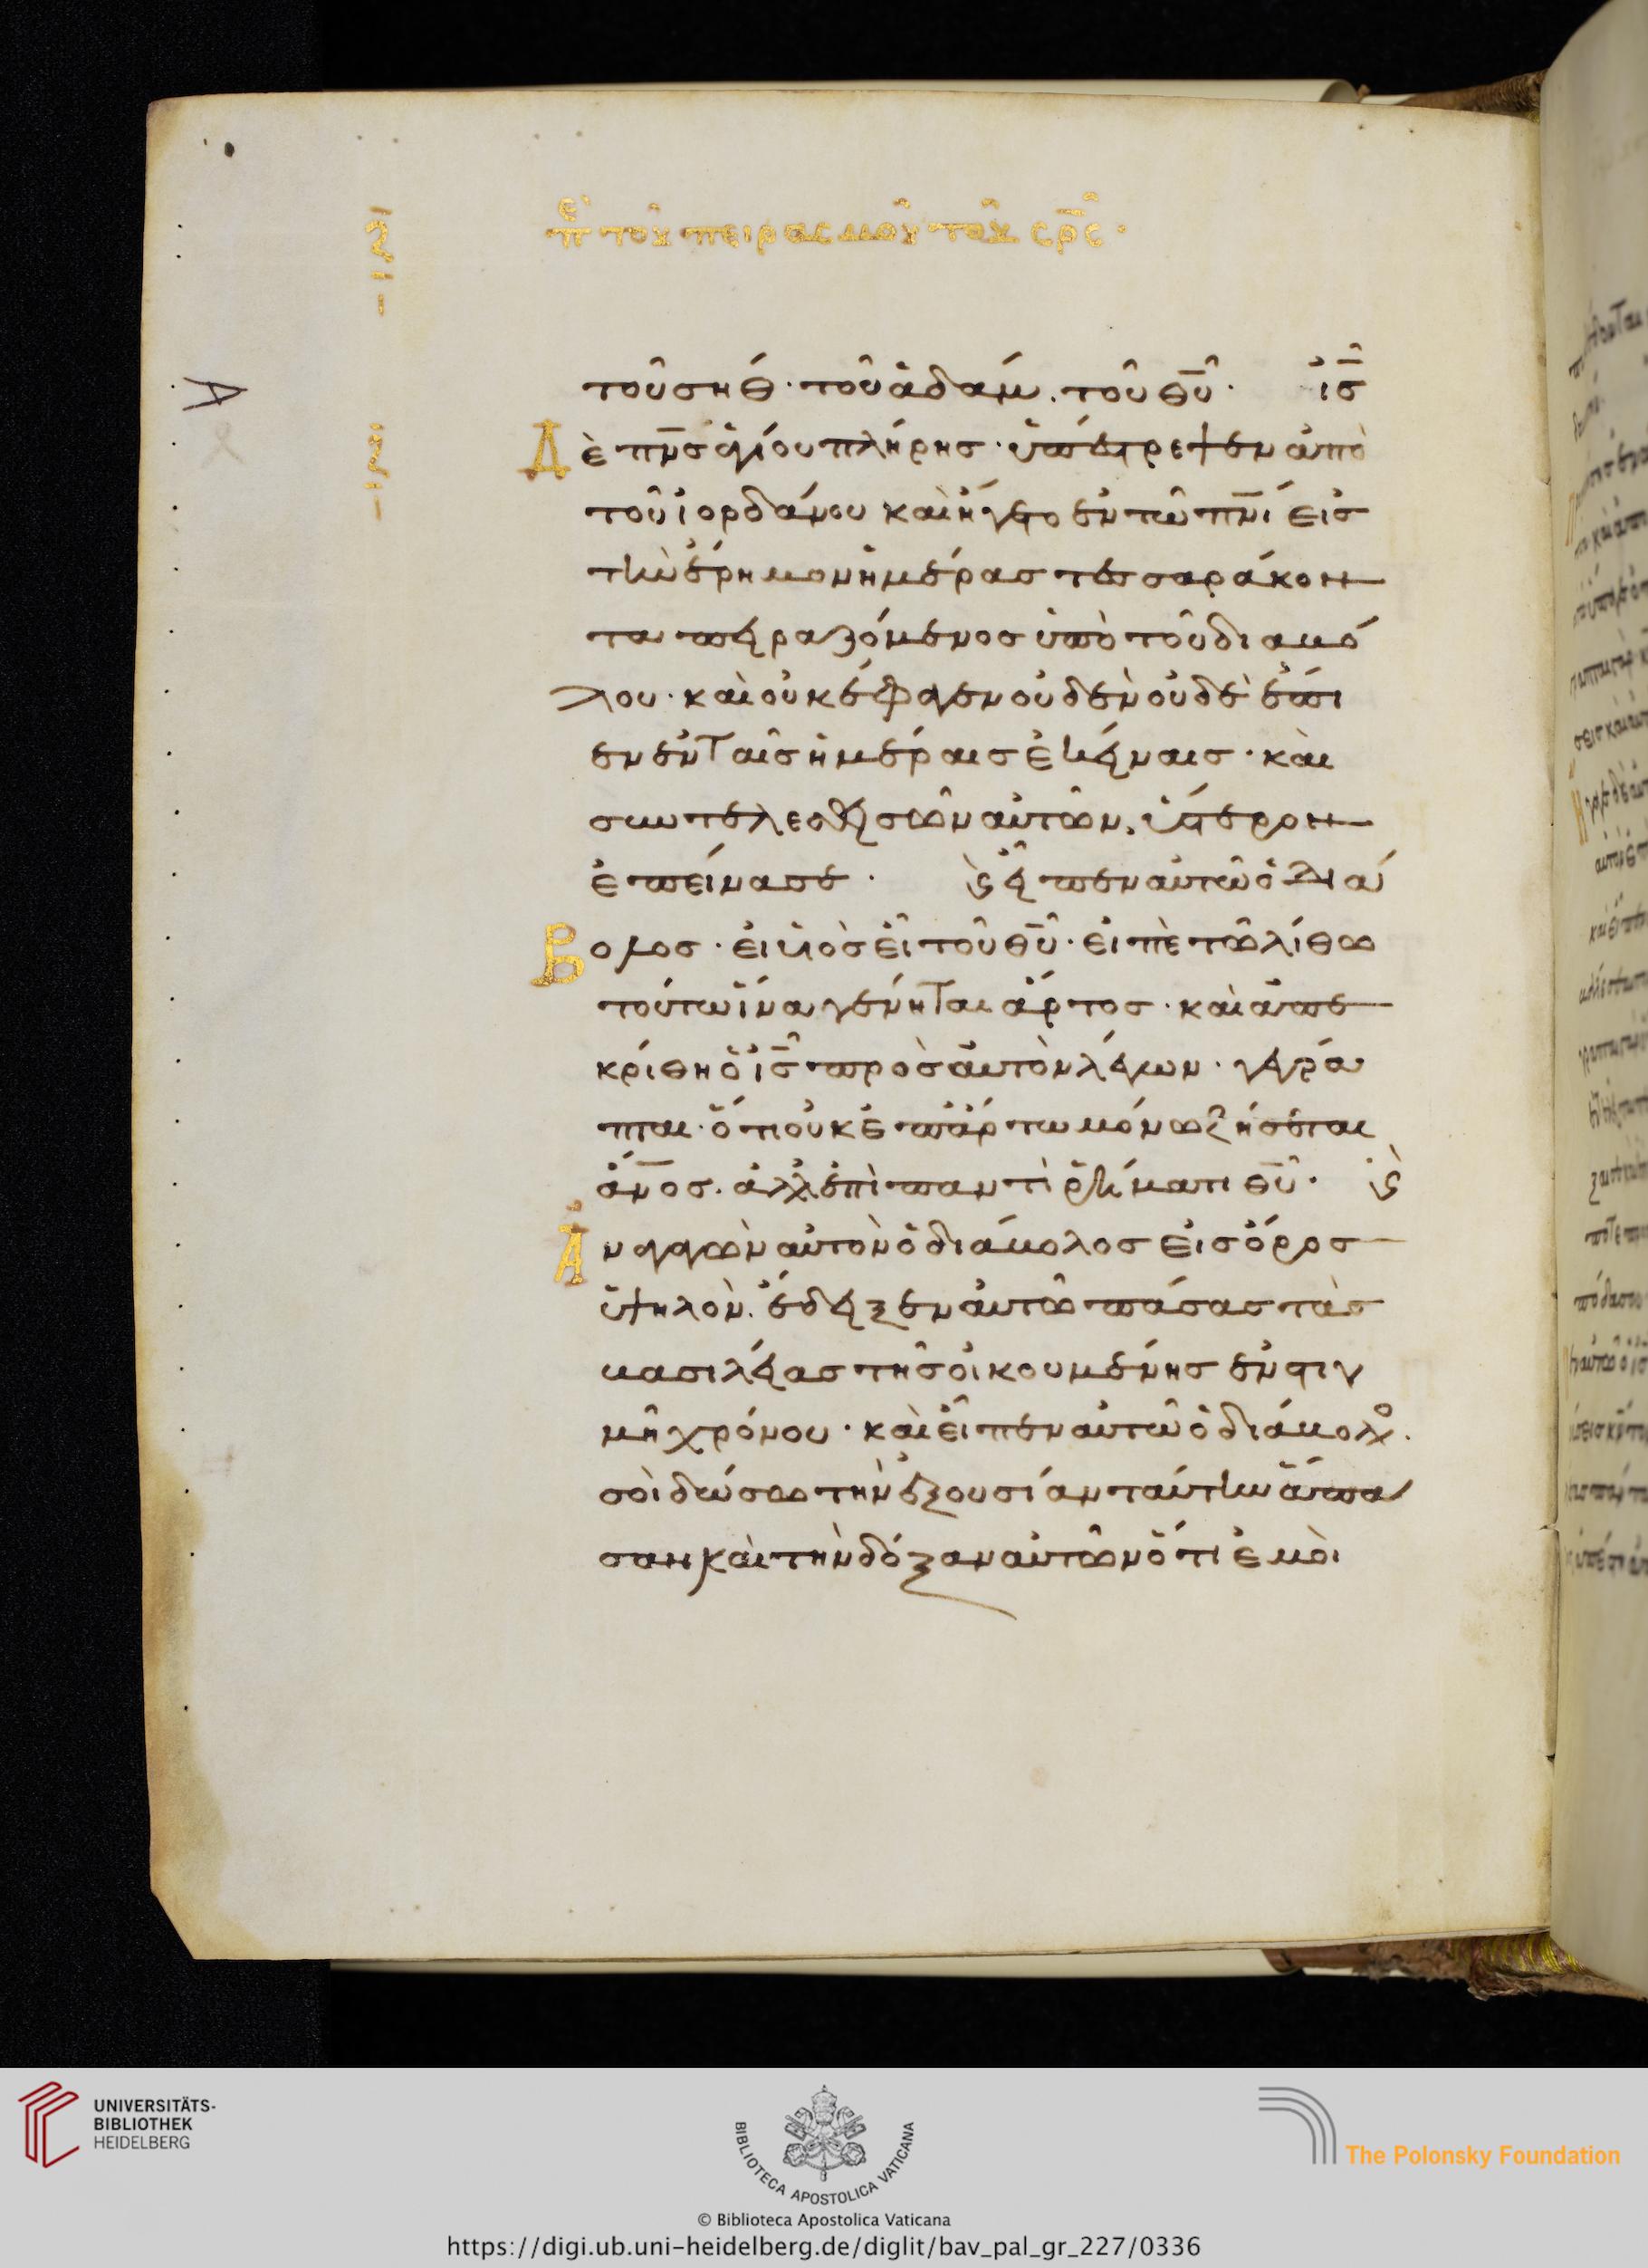 πε τοῦ πειρασμοῦ τοῦ σρς ·
τοῦ σὴθ · τοῦ ἀδάμ . τοῦ θυ · ις
Δὲ πνς ἁγίου πλήρης · ὑπέστρεψεν ἀπὸ
τοῦ ἰορδάνου καὶ ἤγετο ἐν τῶ πνι εἰς
τὴν ἔρημον ἡμέρας τεσσαράκον
τα πειραζόμενος ὑπὸ τοῦ διαβό
λου · καὶ οὐκ ἔφαγεν οὐδὲν οὐδὲ ἔπι
εν ἐν ταῖς ἡμέραις ἐκείναις · καὶ
συντελεσθεισῶν αὐτῶν, ὕστερον
ἐπείνασε · ϗ εἶπεν αὐτῶ ὁ διά
Βολος · εἰ υἱὸς εἶ τοῦ θυ · εἰπὲ τῶ λίθω
τούτω ἵνα γένηται ἄρτος · καὶ ἀπε
κρίθη ὁ ις πρὸς αὐτὸν λέγων · γέγρα
πται · ὅτι οὐκ ἐπ ἄρτω μόνω ζήσεται
ανος . ἀλλ ἐπὶ παντὶ ῥήματι θυ · ϗ
Ἀναγαγὼν αὐτὸν ὁ διάβολος εἰς ὄρος
ὑψηλὸν . ἔδειξεν αὐτῶ πάσας τὰς
βασιλείας τῆς οἰκουμένης ἐν στιγ
μῆ χρόνου · καὶ εἶπεν αὐτῶ ὁ διάβολο .
σοὶ δώσω τὴν ἐξουσίαν ταύτην ἅπα
σαν καὶ τὴν δόξαν αὐτῶν ὅτι ἐμοὶ
UNIVERSITÄTS-
BIBLIOTHEK
HEIDELBERG
BIBLIOTECA APOSTOLICA VATICANA
The Polonsky Foundation
© Biblioteca Apostolica Vaticana
https://digi.ub.uni-heidelberg.de/diglit/bav_pal_gr_227/0336